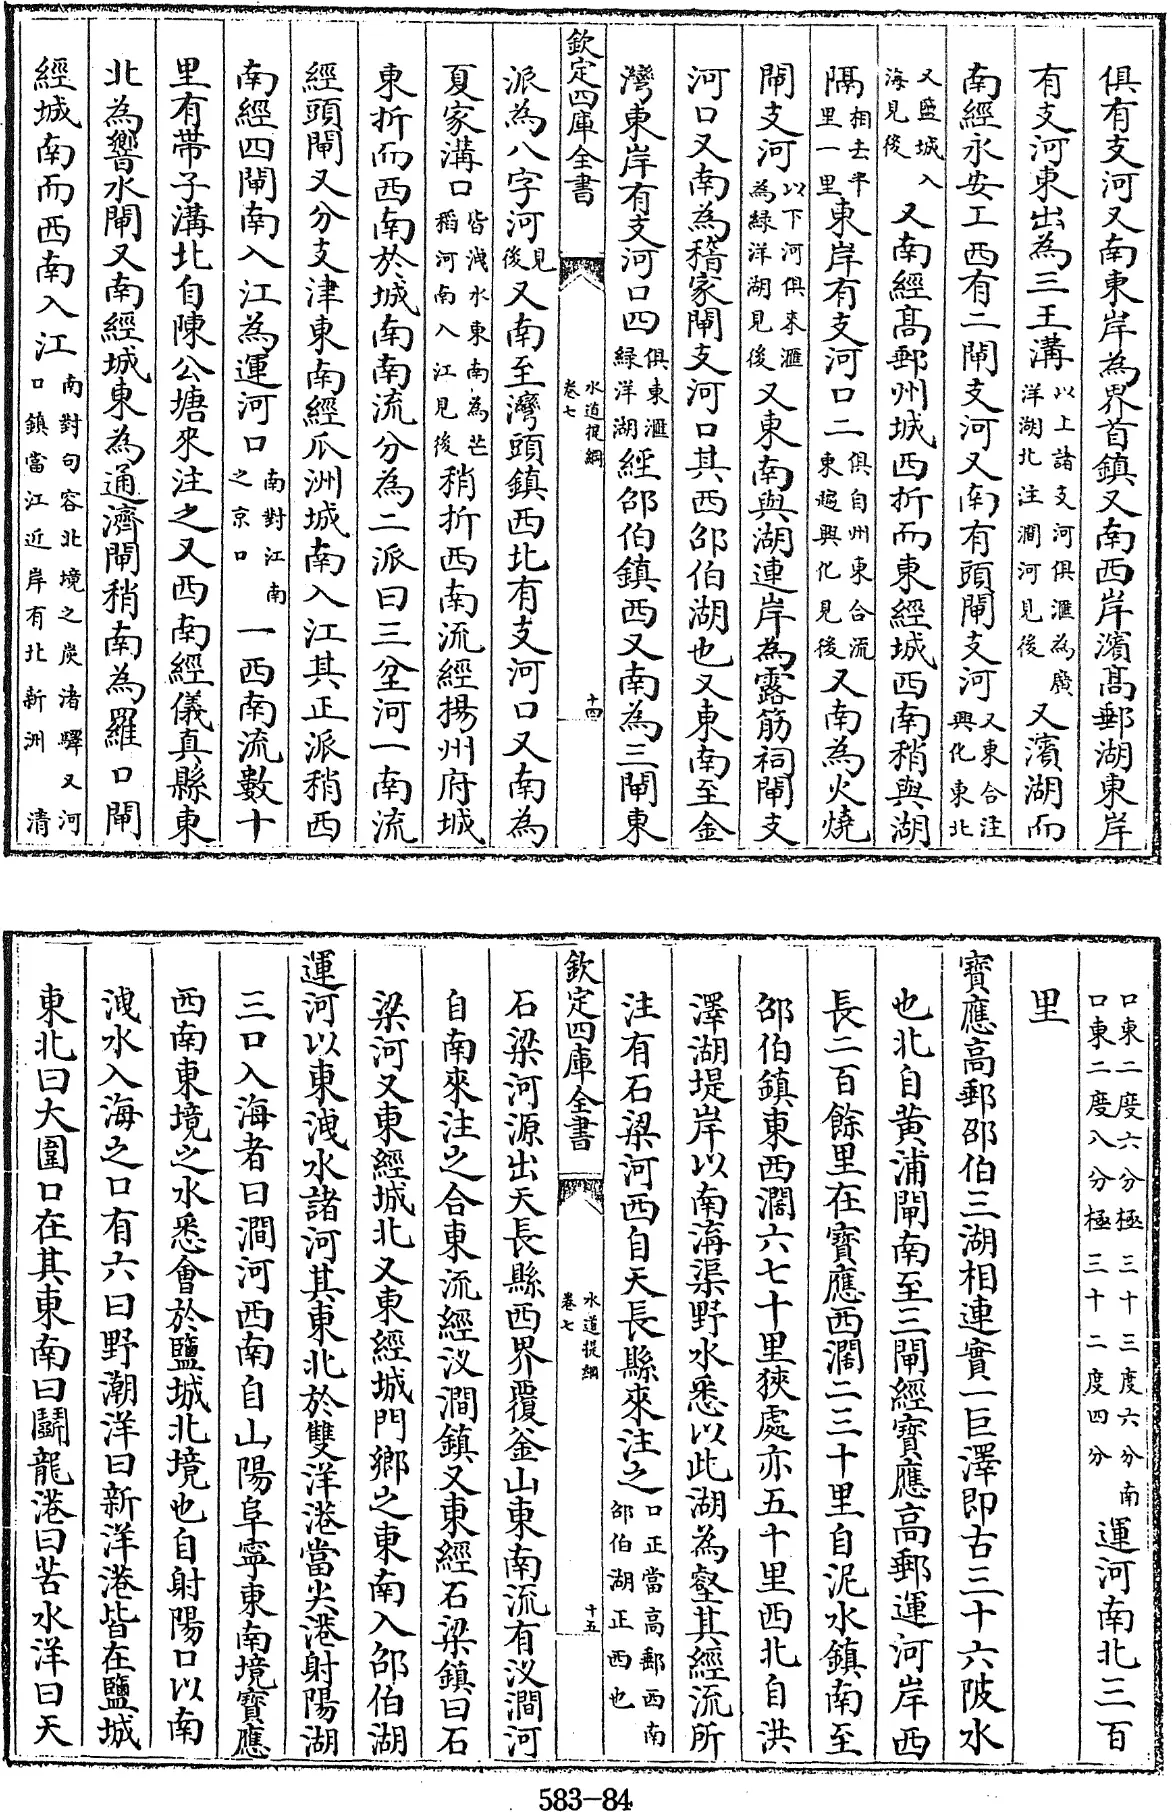 俱有支河又南東岸為界首鎮又南西岸濱髙郵湖東岸
有支河東出為三王溝以上諸支河俱滙為廣洋湖北注澗河見後又濱湖而
南經永安工西有二閘支河又南有頭閘支河又東合注興化東北
又鹽城入海見後又南經髙郵州城西折而東經城西南稍與湖
隔相去半里一里東岸有支河口二俱自州東合流東趨興化見後又南為火燒
閘支河以下河俱來滙為緑洋湖見後又東南與湖連岸為露筋祠閘支
河口又南為稽家閘支河口其西邵伯湖也又東南至金
灣東岸有支河口四俱東滙緑洋湖經邵伯鎮西又南為三閘東
欽定四庫全書
水道提綱
卷七
十四
派為八字河見後又南至灣頭鎮西北有支河口又南為
夏家溝口皆洩水東南為芒稻河南入江見後稍折西南流經揚州府城
東折而西南於城南南流分為二派曰三坌河一南流
經頭閘又分支津東南經瓜洲城南入江其正派稍西
南經四閘南入江為運河口南對江南之京口一西南流數十
里有帶子溝北自陳公塘來注之又西南經儀真縣東
北為響水閘又南經城東為通濟閘稍南為羅口閘
經城南而西南入江南對句容北境之炭渚驛又河口鎮當江近岸有北新洲清
口東二度六分極三十三度六分南口東二度八分極三十二度四分運河南北三百
里
寳應高郵邵伯三湖相連實一巨澤即古三十六陂水
也北自黄浦閘南至三閘經寳應高郵運河岸西
長二百餘里在寳應西濶二三十里自泥水鎮南至
邵伯鎮東西濶六七十里狹處亦五十里西北自洪
澤湖堤岸以南溝渠野水悉以此湖為壑其經流所
注有石梁河西自天長縣來注之口正當高郵西南邵伯湖正西也
欽定四庫全書
水道提綱
卷七
十五
石梁河源出天長縣西界覆釜山東南流有汊澗河
自南來注之合東流經汊澗鎮又東經石梁鎮曰石
梁河又東經城北又東經城門鄉之東南入邵伯湖
運河以東洩水諸河其東北於雙洋港當尖港射陽湖
三口入海者曰澗河西南自山陽阜寧東南境寳應
西南東境之水悉會於鹽城北境也自射陽口以南
洩水入海之口有六曰野潮洋曰新洋港皆在鹽城
東北曰大圍口在其東南曰鬭龍港曰苦水洋曰天
583-84